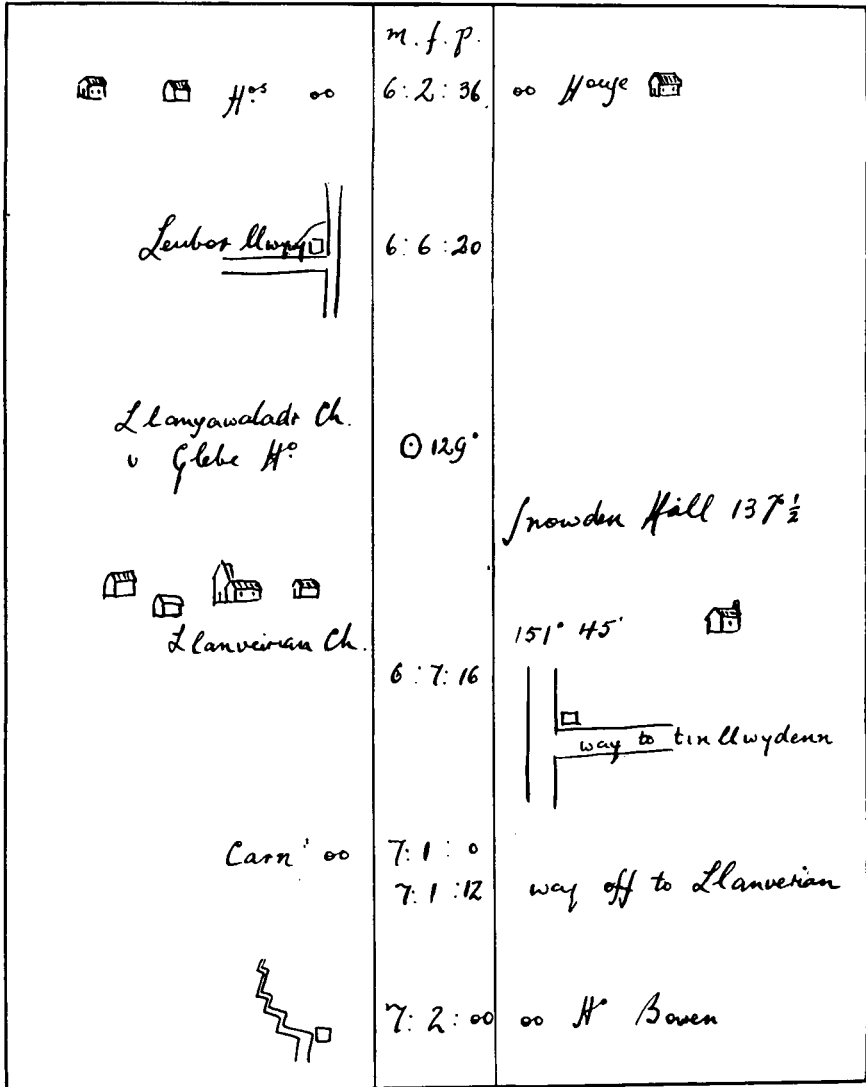 m. f. p.
H.os oo 6:2:36 oo House
Leubor llwyy 6:6:20
Llangawaladr Ch.
Glebe Ho. ⊙ 129°
Snowden Hill 137½
Llanveirian Ch. 151° 45'
6:7:16
way to tin llwydenn
Carn oo 7:1:0
7:1:12 way off to Llanverian
7:2:00 oo Ho Bowen